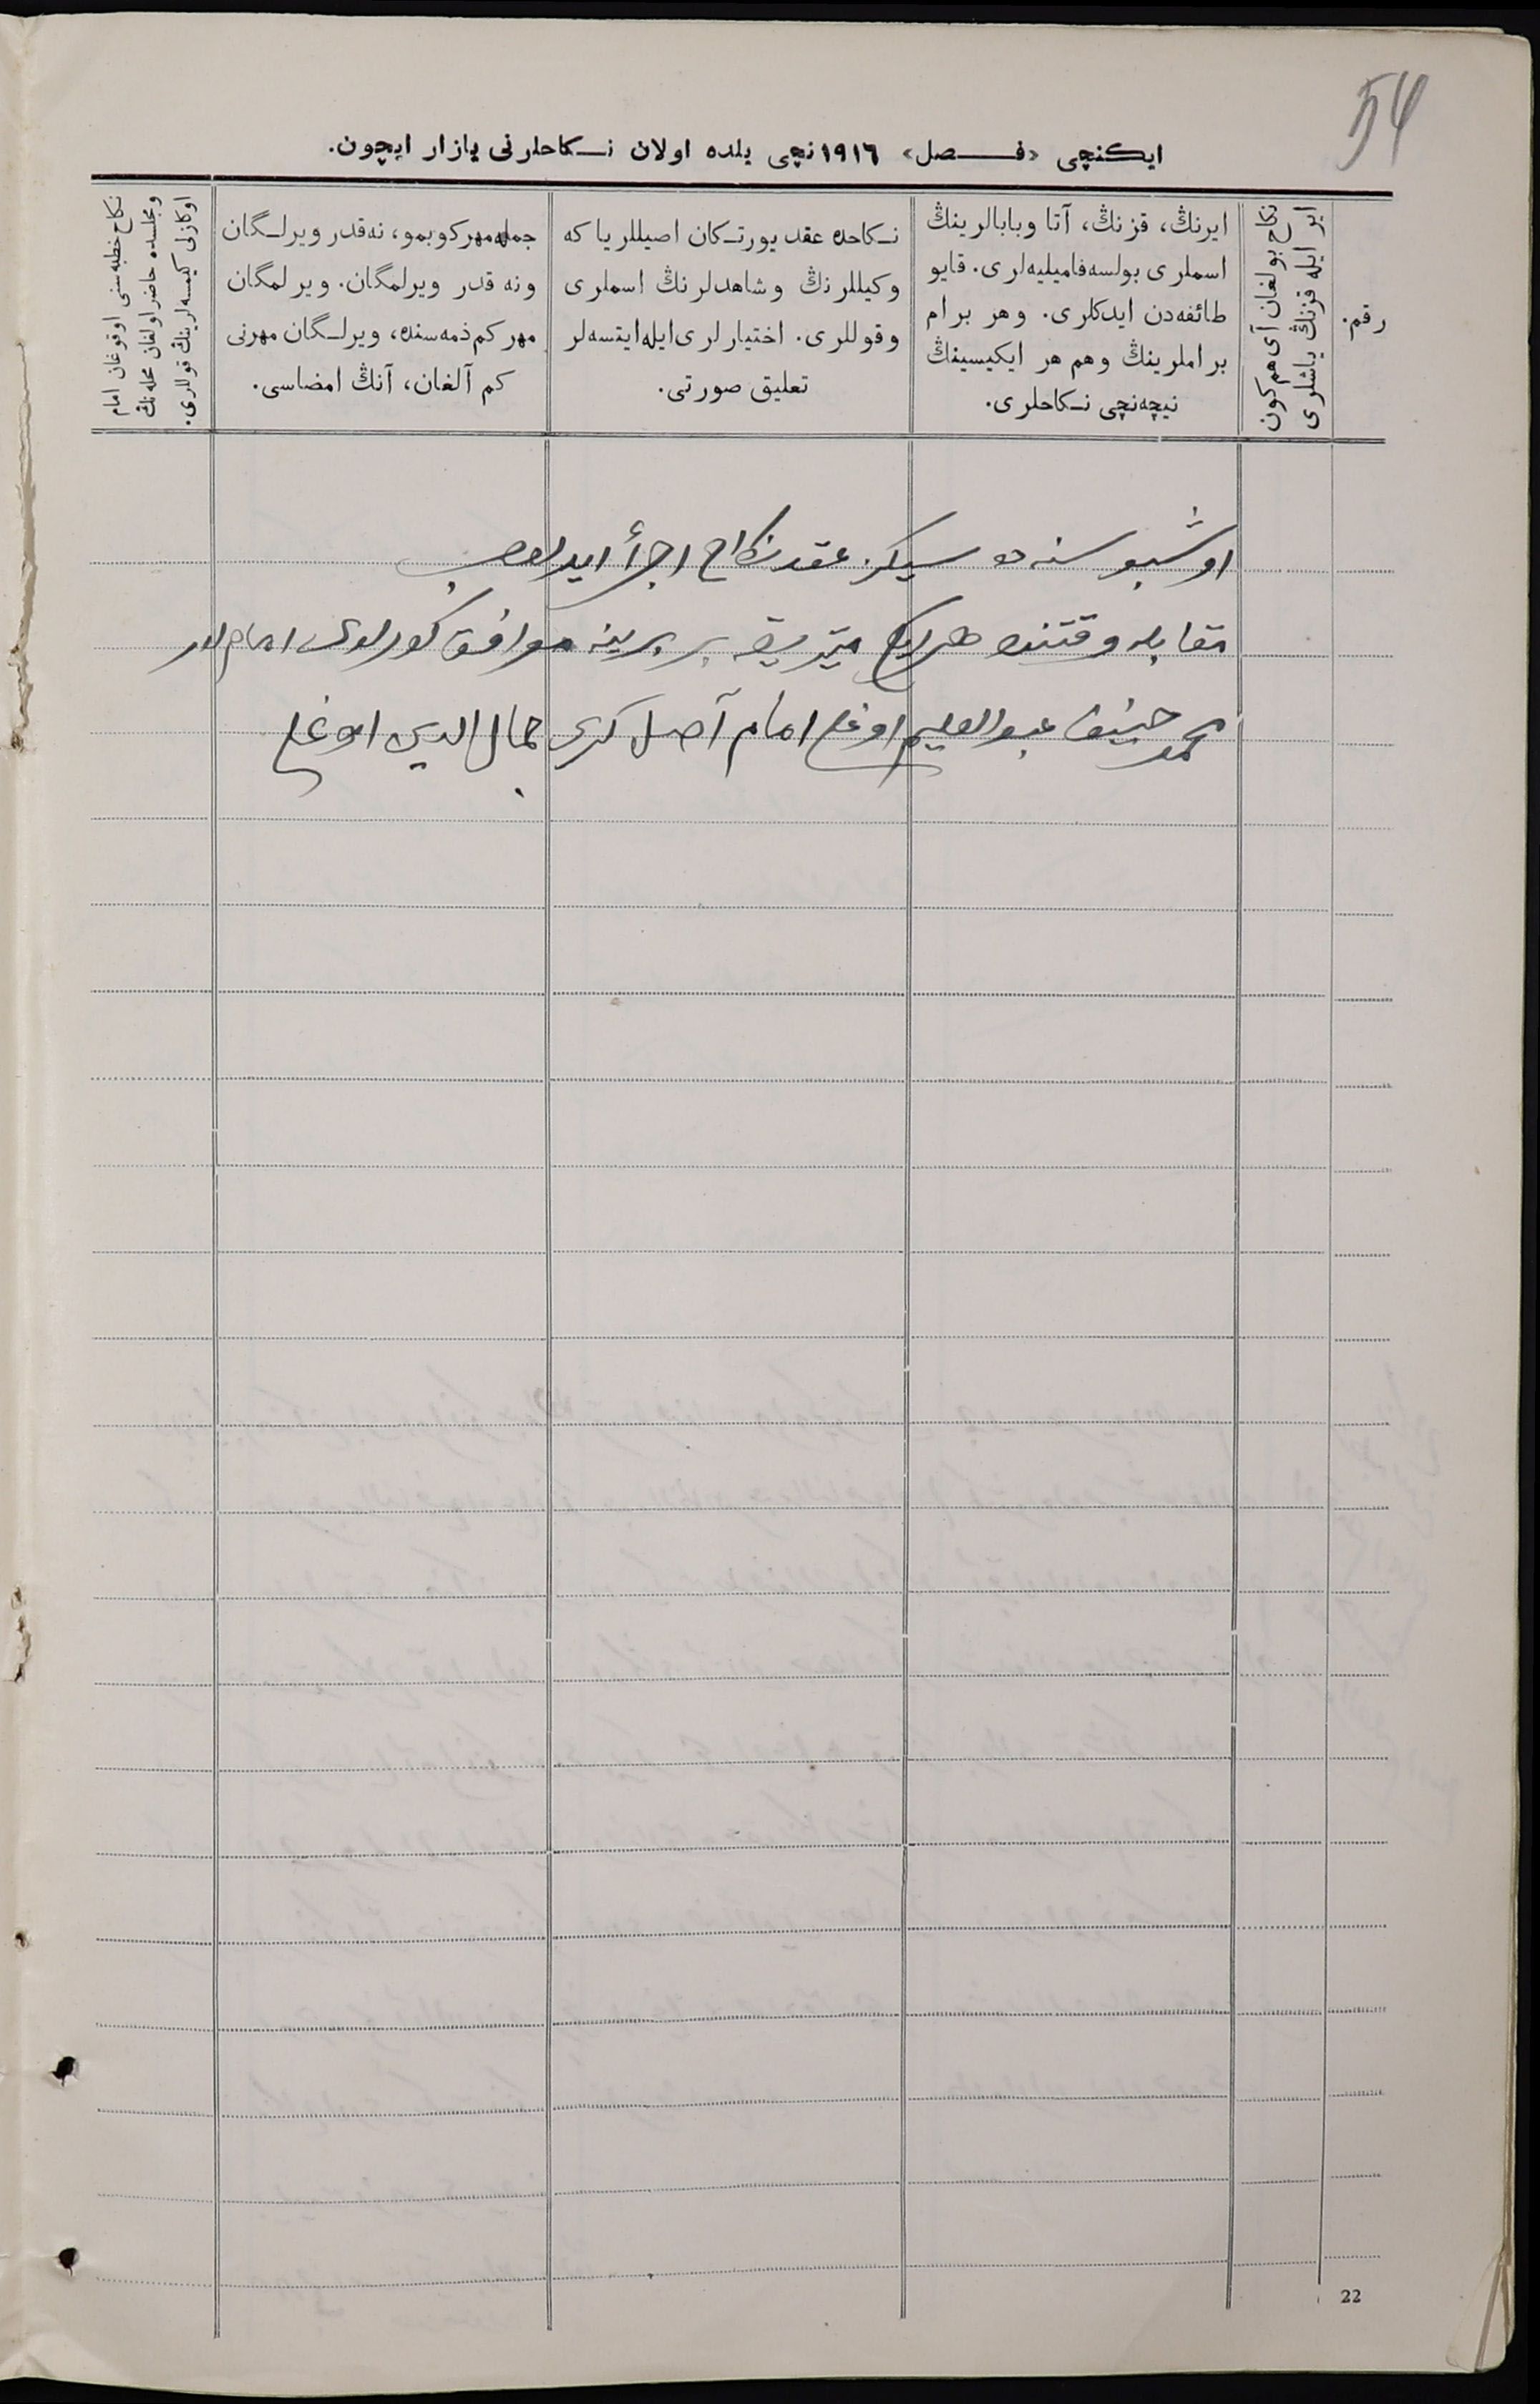 54
ایكنچی «فصل» ١٩١٦نچی یلده اولان نكاحلرنی یازار ایچون.
رقم.
نكاح بولغان آی هم كون
ایر ایله قزنڭ یاشلری
ایرنڭ، قزنڭ، آتا وبابالرینڭ
اسملری بولسه‌فامیلیه‌لری. قایو
طائفه‌دن ایدكلری. وهر برام
براملرینڭ وهم هر ایكیسینڭ
نیچه‌نچی نكاحلری.
نكاحده عقد یورتكان اصیللریا كه
وكیللرنڭ وشاهدلرنڭ اسملری
وقوللری. اختیارلری‌ایله‌ایتسه‌لر
تعلیق صورتی.
جمله‌مهركوبمو، نه‌قدر ویرلگان
ونه قدر ویرلمگان. ویرلمگان
مهر كم ذمه‌سنده، ویرلگان مهرنی
كم آلغان، آنڭ امضاسی.
نكاح خطبه‌سنی اوقوغان امام
ومجلسده حاضر اولغان محله‌نڭ
اوكازلی كیمسه‌لرینڭ قوللاری.
اوشبو سنه ده سیكز عقد نكاح اجرأ ایدلوب
مقابله وقتنده هر ایكی میتریقه بر برینه موافق كورلدی اماملر
محمد حنیف عبدالعلیم اوغلی امام آصل كری جمال الدین اوغلی
22